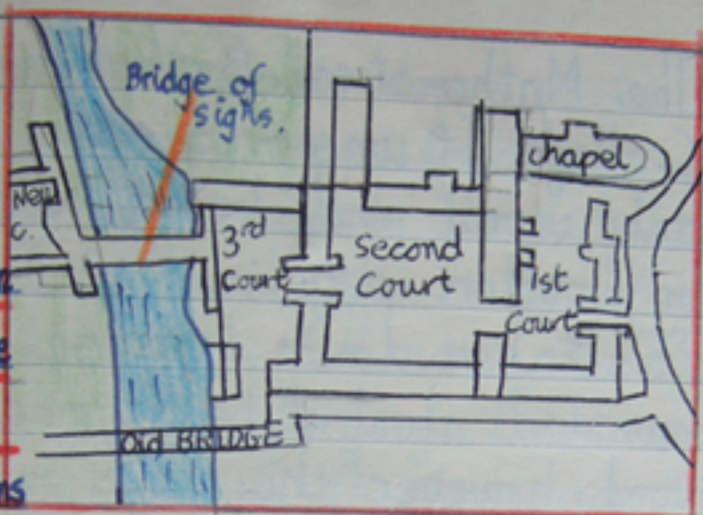 Bridge of
sighs.
chapel
New
C.
3rd
Court
Second
Court
1st
Court
Old BRIDGE
ns